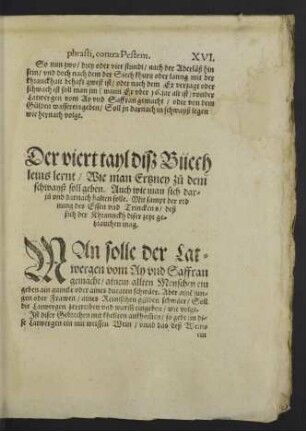 phrasti, contra Pestem. XVI.
So nun zwo / drey oder vier stundt / nach der Aderläß hin
sein / und doch nach dem der Siech kurtz oder lanng mit der
Kranckhait behafft gwest ist / oder nach dem Er verzagt oder
schwach ist soll man im / wann Er ober 16. jar alt ist / von der
Latwergen vom Ay vnd Saffran gemacht / oder von dem
Gulden wasser eingeben / Soll in darnach in schwayß legen
wie hernach volgt.
Der viert tayl diß Büech
leins lernt / Wie man Ertzney zů dem
schwayß soll geben. Auch wie man sich dar-
zů vnd darnach halten solle. Mit sampt der ord
nung des Essen vnd Trinckens / deß
sich der Kranneckh diser zeyt ge-
brauchen mag.
MAn solle der Lat-
wergen vom Ay vnd Saffran
gemacht / ainem allten Menschen ein
geben ain quintle oder aines ducaten schwär. Aber ainē jun-
gen oder Frawen / eines Reinischen gulden schwär / Soll
die Latwergen zertreiben vnd warm eingeben / wie volgt.
Ist diser Gebrechen mit frost ankhomen / so gebt im di-
se Latwergen ein mit weissem Wein / vnnd das deß Weins
ein